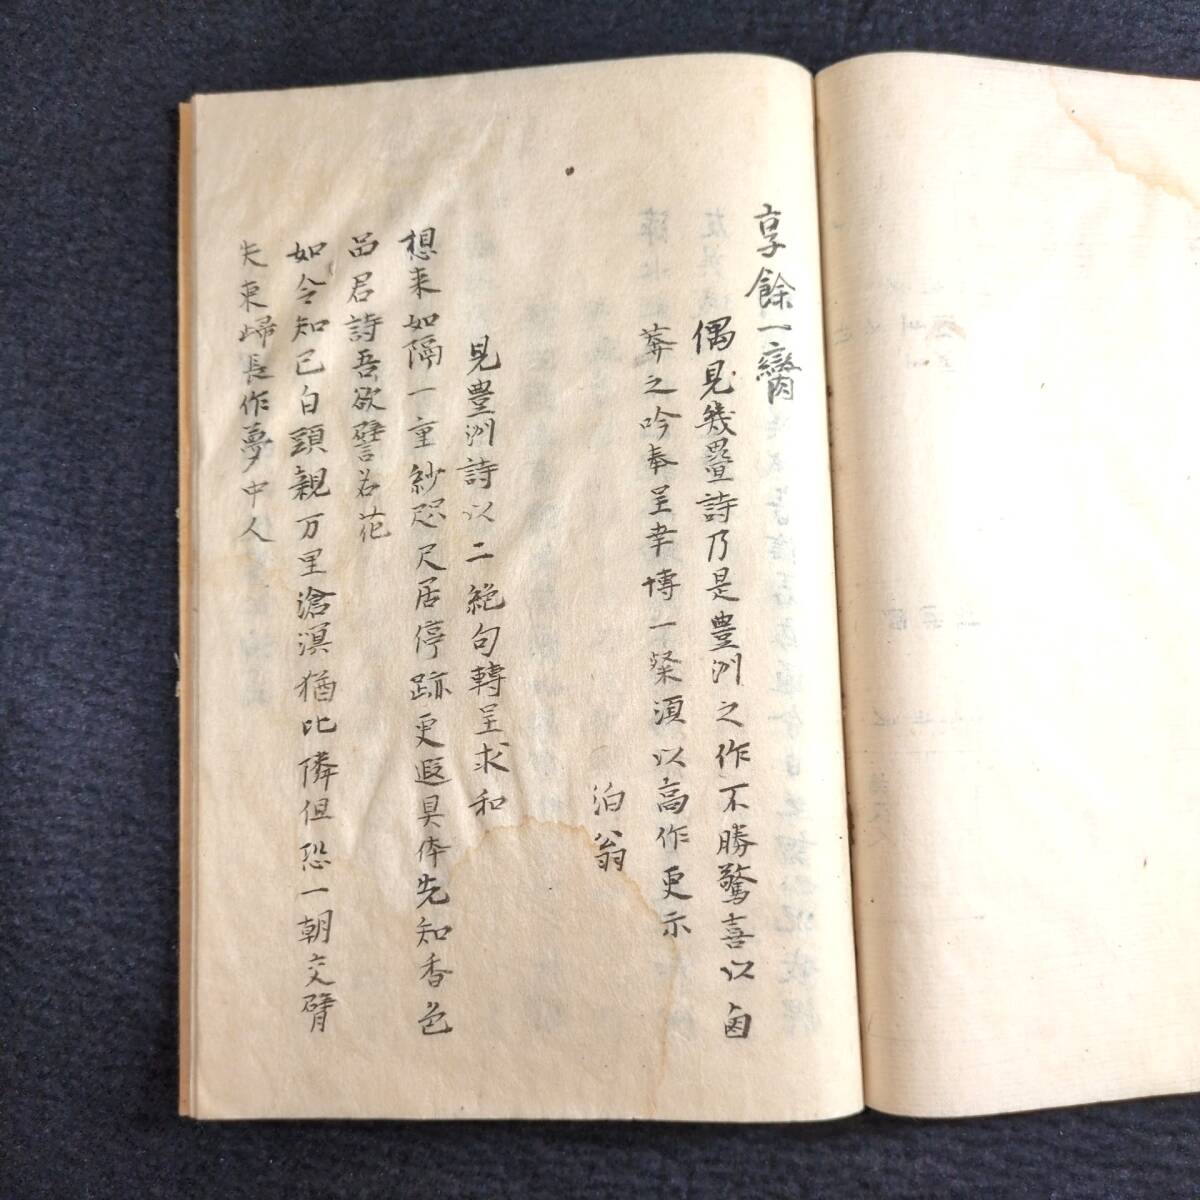 享餘一臠
偶見幾疊詩乃是豊洲之作不勝驚喜以鹵
莽之吟奉呈幸博一粲須以高作更示
泊翁
見豊洲詩以二絶句轉呈求和
想来如隔一重紗咫尺居停跡更遐具体先知香色
品君詩吾欲譬名花
如今知己白頭親万里滄溟猶比隣但恐一朝交臂
失東歸長作夢中人